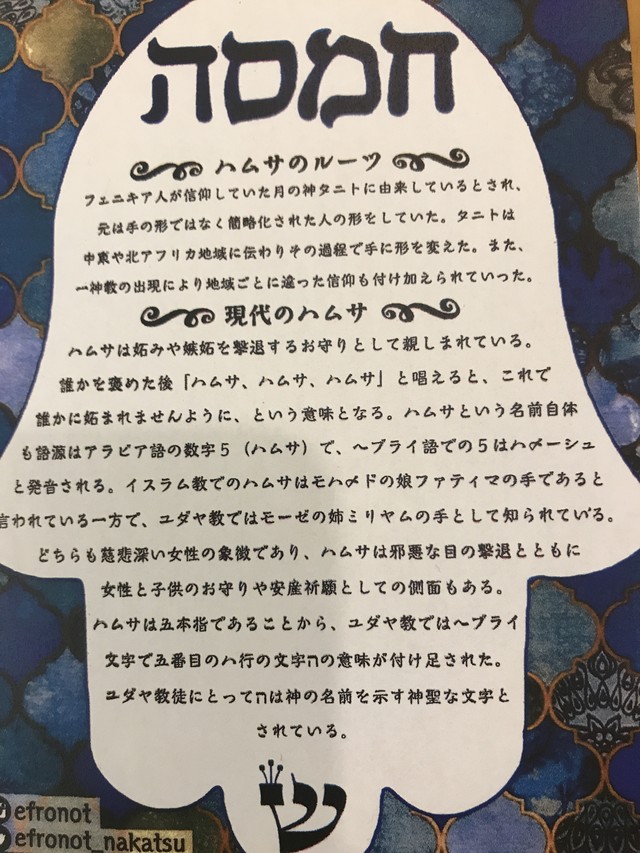 חמסה
ハムサのルーツ
フェニキア人が信仰していた月の神タニトに由来しているとされ、
元は手の形ではなく簡略化された人の形をしていた。タニトは
中東や北アフリカ地域に伝わりその過程で手に形を変えた。また、
一神教の出現により地域ごとに違った信仰も付け加えられていった。
現代のハムサ
ハムサは妬みや嫉妬を撃退するお守りとして親しまれている。
誰かを褒めた後「ハムサ、ハムサ、ハムサ」と唱えると、これで
誰かに妬まれませんように、という意味となる。ハムサという名前自体
も語源はアラビア語の数字5（ハムサ）で、ヘブライ語での5はハメーシュ
と発音される。イスラム教でのハムサはモハメドの娘ファティマの手であると
言われている一方で、ユダヤ教ではモーゼの姉ミリヤムの手として知られている。
どちらも慈悲深い女性の象徴であり、ハムサは邪悪な目の撃退とともに
女性と子供のお守りや安産祈願としての側面もある。
ハムサは五本指であることから、ユダヤ教ではヘブライ
文字で五番目のハ行の文字הの意味が付け足された。
ユダヤ教徒にとってהは神の名前を示す神聖な文字と
されている。
שׁ
efronot
efronot_nakatsu